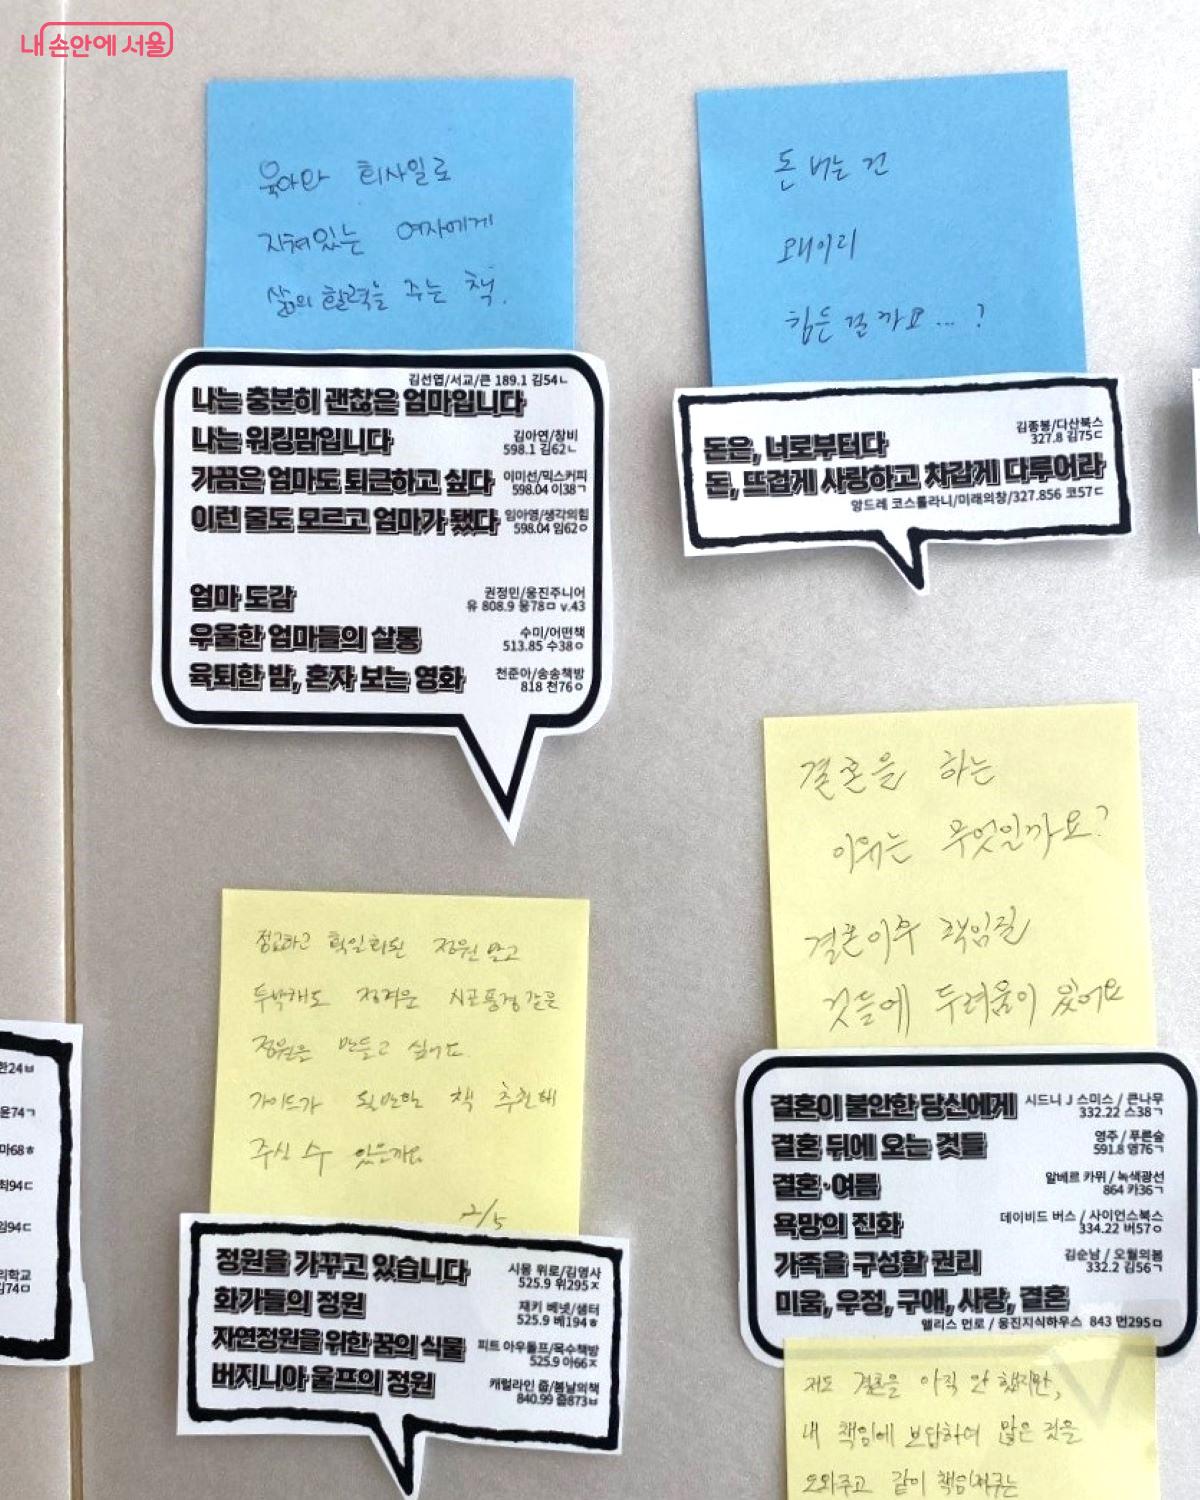 내 손안에 서울
육아와 회사일로
지쳐있는 여자에게
삶의 활력을 주는 책.
김선엽/서교/큰 189.1 김54ㄴ
나는 충분히 괜찮은 엄마입니다
나는 워킹맘입니다
김아연/창비
598.1 김62ㄴ
가끔은 엄마도 퇴근하고 싶다
이미선/믹스커피
598.04 이38ㄱ
이런 줄도 모르고 엄마가 됐다
임아영/생각의힘
598.04 임62ㅇ
엄마 도감
권정민/웅진주니어
유 808.9 웅78ㅁ v.43
우울한 엄마들의 살롱
수미/어떤책
513.85 수38ㅇ
육퇴한 밤, 혼자 보는 영화
천준아/송송책방
818 천76ㅇ
돈 버는 건
왜이리
힘든 걸까요...?
김종봉/다산북스
327.8 김75ㄷ
돈은, 너로부터다
돈, 뜨겁게 사랑하고 차갑게 다루어라
앙드레 코스톨라니/미래의창/327.856 코57ㄷ
정교하고 획일화된 정원 말고
투박해도 정겨운 시골풍경같은
정원을 만들고 싶어요.
가이드가 될만한 책 추천해
주실 수 있을까요
2/5
정원을 가꾸고 있습니다
시몽 위로/김영사
525.9 위295ㅈ
화가들의 정원
재키 베넷/샘터
525.9 베194ㅎ
자연정원을 위한 꿈의 식물
피트 아우돌프/목수책방
525.9 아66ㅈ
버지니아 울프의 정원
캐럴라인 줍/봄날의책
840.99 줍873ㅂ
결혼을 하는
이유는 무엇일까요?
결혼이후 책임질
것들에 두려움이 있어요
결혼이 불안한 당신에게
시드니 J 스미스 / 큰나무
332.22 스38ㄱ
결혼 뒤에 오는 것들
영주 / 푸른숲
591.8 영76ㄱ
결혼·여름
알베르 카뮈 / 녹색광선
864 카36ㄱ
욕망의 진화
데이비드 버스 / 사이언스북스
334.22 버57ㅇ
가족을 구성할 권리
김순남 / 오월의봄
332.2 김56ㄱ
미움, 우정, 구애, 사랑, 결혼
앨리스 먼로 / 웅진지식하우스 843 먼295ㅁ
저도 결혼을 아직 안 했지만,
내 책임에 보답하여 많은 것을
도와주고 같이 책임져주는
한24ㅂ
윤74ㄱ
마68ㅎ
최94ㄷ
임94ㄷ
의학교
김74ㅁ